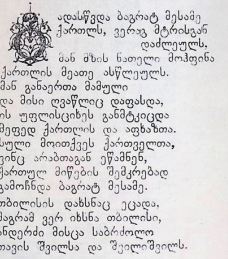 ადასწვდა ბაგრატ მესამე
ქართლს, ვერაგ მტრისგან
დაძლეულს,
მან მზის ნათელი მოჰფინა
ქართლის მეათე ასწლეულს.
მან განაერთა მამული
და მისი ღვაწლიც დაფასდა,
ის უფლისციხეს განმტკიცდა
მეფედ ქართლის და აფხაზთა.
სული მოითქვეს ქართველთა,
ვინც არაბთაგან ეწამნენ,
ქართულ მიწების შემკრებად
გამოჩნდა ბაგრატ მესამე.
თბილისის დახსნაც ეცადა,
მაგრამ ვერ იხსნა თბილისი,
ანდერძი მისცა საბრძოლო
თავის შვილსა და შვილიშვილს.